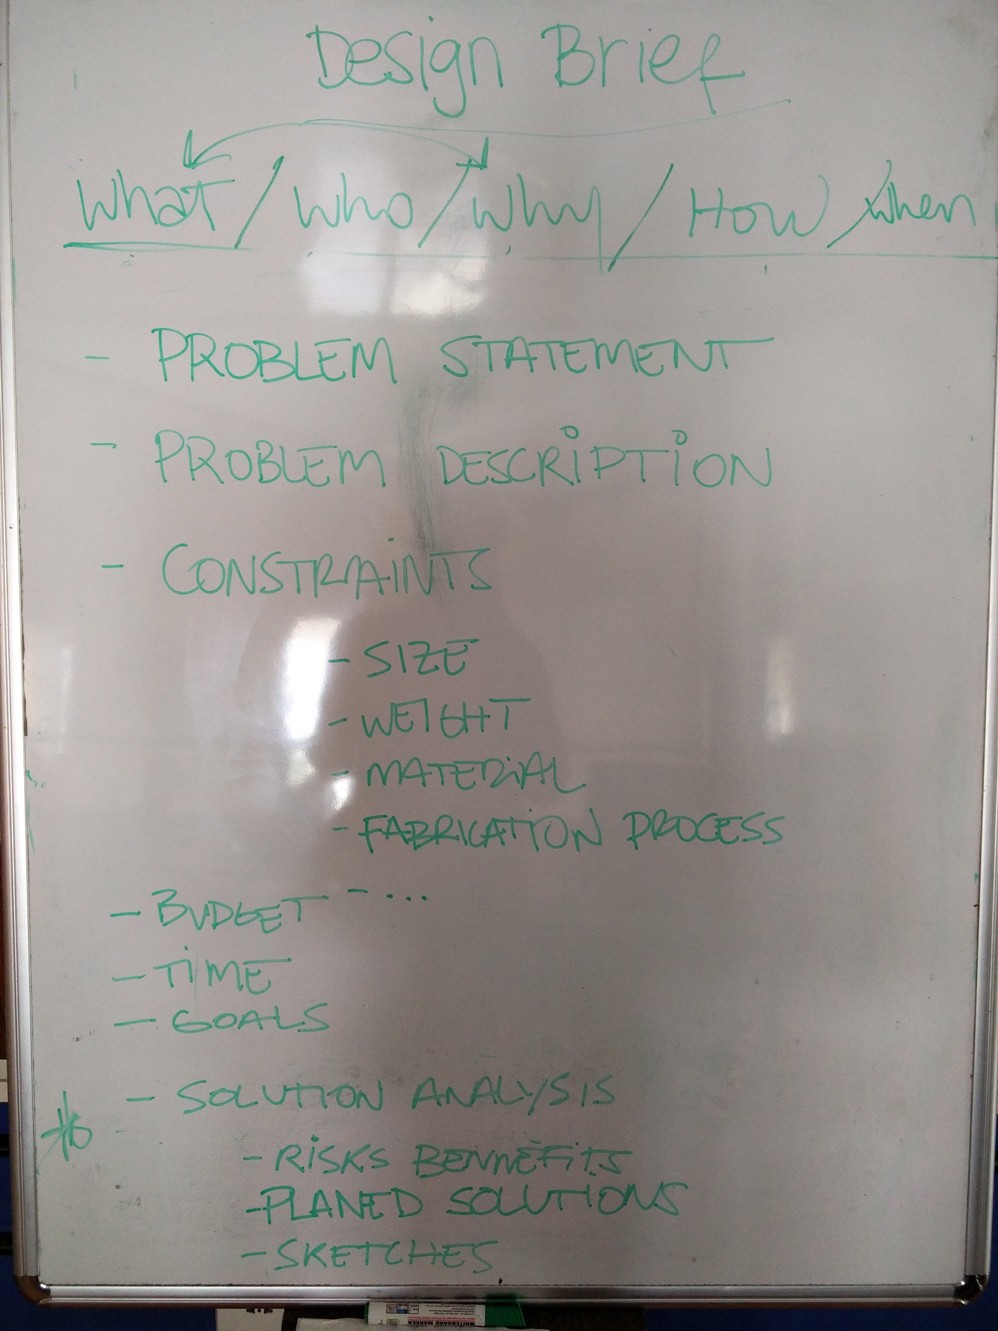 Design Brief
What / Who / Why / How / when
- PROBLEM STATEMENT
- PROBLEM DESCRIPTION
- CONSTRAINTS
- SIZE
- WEIGHT
- MATERIAL
- FABRICATION PROCESS
- ...
- BUDGET
- TIME
- GOALS
- SOLUTION ANALYSIS
- RISKS BENNEFITS
- PLANED SOLUTIONS
- SKETCHES
WHITEBOARD MARKER